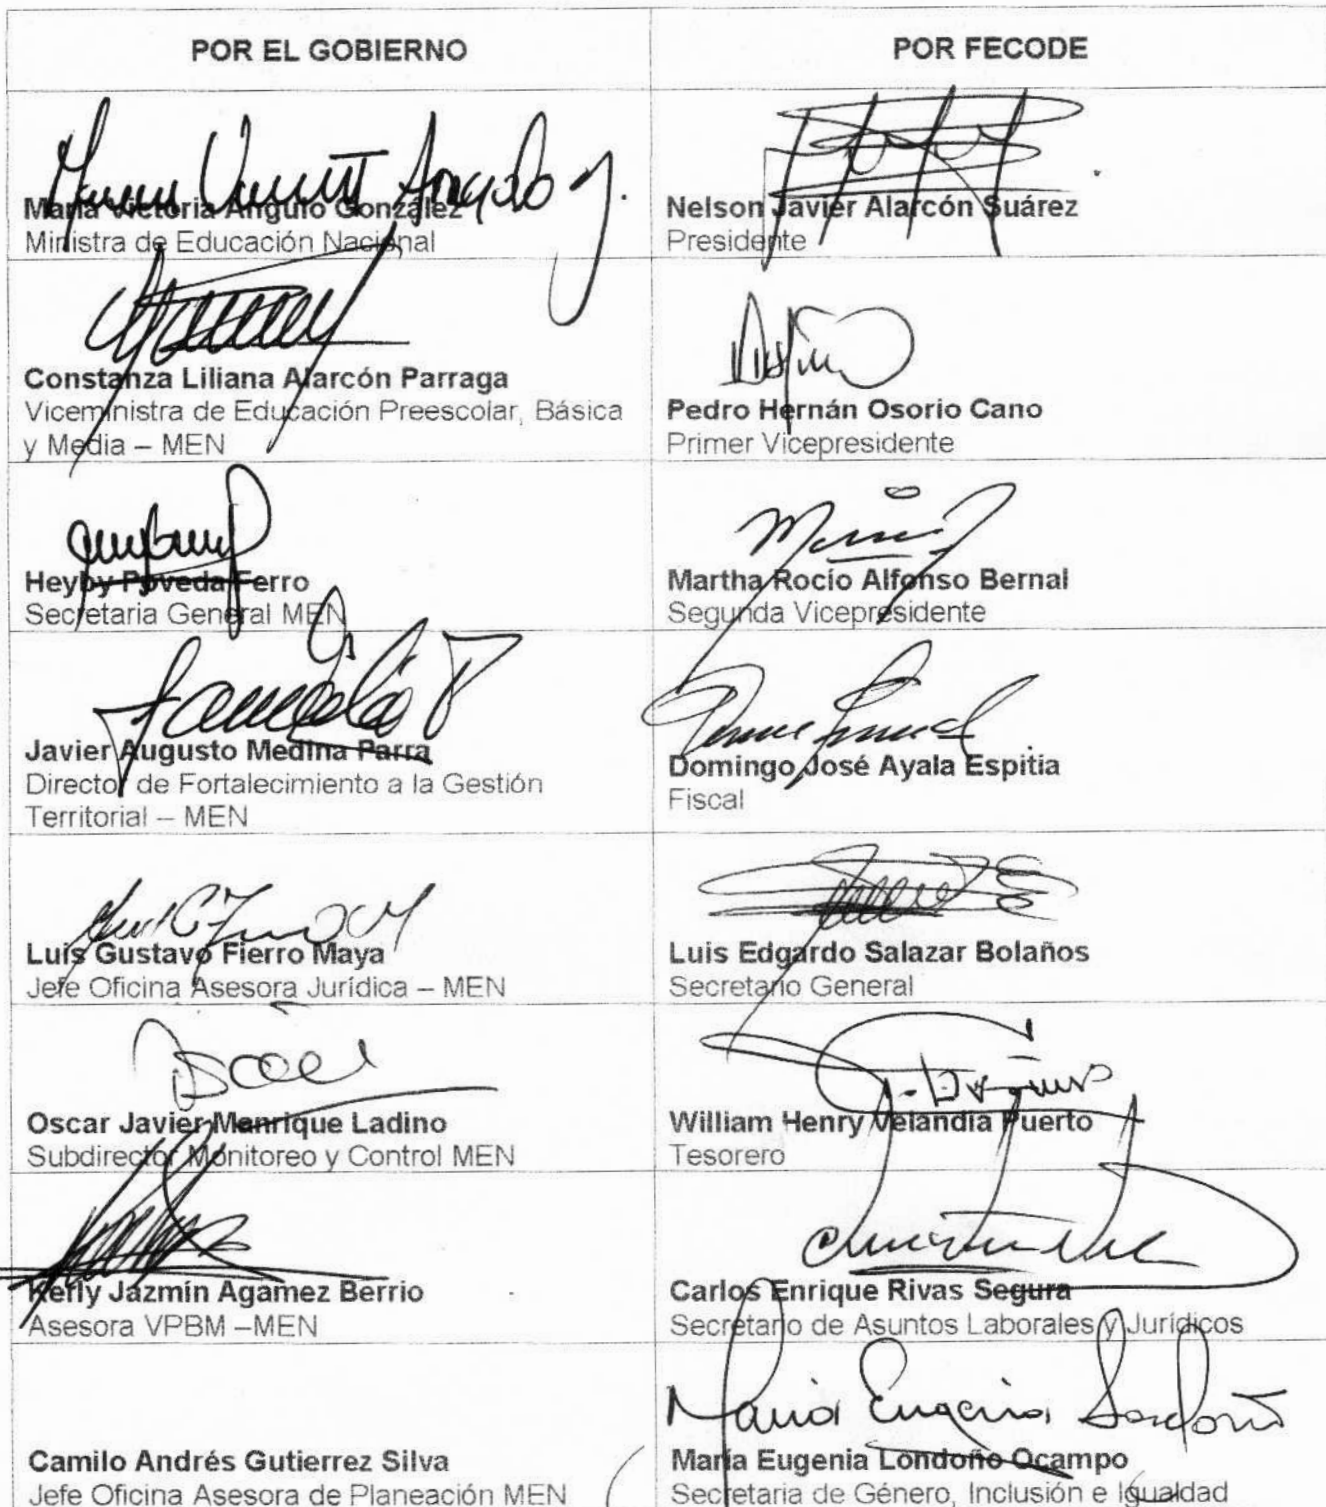 POR EL GOBIERNO
POR FECODE
María Victoria Angulo González
Ministra de Educación Nacional
Nelson Javier Alarcón Suárez
Presidente
Constanza Liliana Alarcón Parraga
Viceministra de Educación Preescolar, Básica
y Media – MEN
Pedro Hernán Osorio Cano
Primer Vicepresidente
Heyby Poveda Ferro
Secretaria General MEN
Martha Rocío Alfonso Bernal
Segunda Vicepresidente
Javier Augusto Medina Parra
Director de Fortalecimiento a la Gestión
Territorial – MEN
Domingo José Ayala Espitia
Fiscal
Luis Gustavo Fierro Maya
Jefe Oficina Asesora Jurídica – MEN
Luis Edgardo Salazar Bolaños
Secretario General
Oscar Javier Manrique Ladino
Subdirector Monitoreo y Control MEN
William Henry Velandia Puerto
Tesorero
Kelly Jazmín Agamez Berrio
Asesora VPBM –MEN
Carlos Enrique Rivas Segura
Secretario de Asuntos Laborales y Jurídicos
Camilo Andrés Gutierrez Silva
Jefe Oficina Asesora de Planeación MEN
Maria Eugenia Londoño
María Eugenia Londoño Ocampo
Secretaria de Género, Inclusión e Igualdad